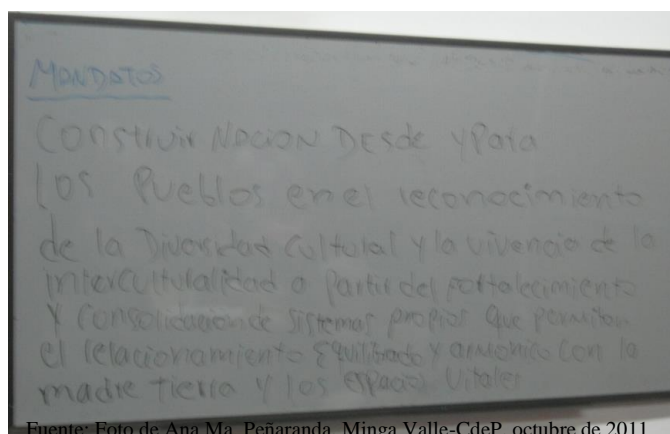 MANDATOS
CONSTRUIR NACION DESDE Y PARA
LOS PUEBLOS en el reconocimiento
de la Diversidad Cultural y la vivencia de la
interculturalidad a partir del fortalecimiento
y consolidacion de sistemas propios que permitan
el relacionamiento Equilibrado y armonico con la
madre tierra y los espacios Vitales
Fuente: Foto de Ana Ma. Peñaranda, Minga Valle-CdeP, octubre de 2011